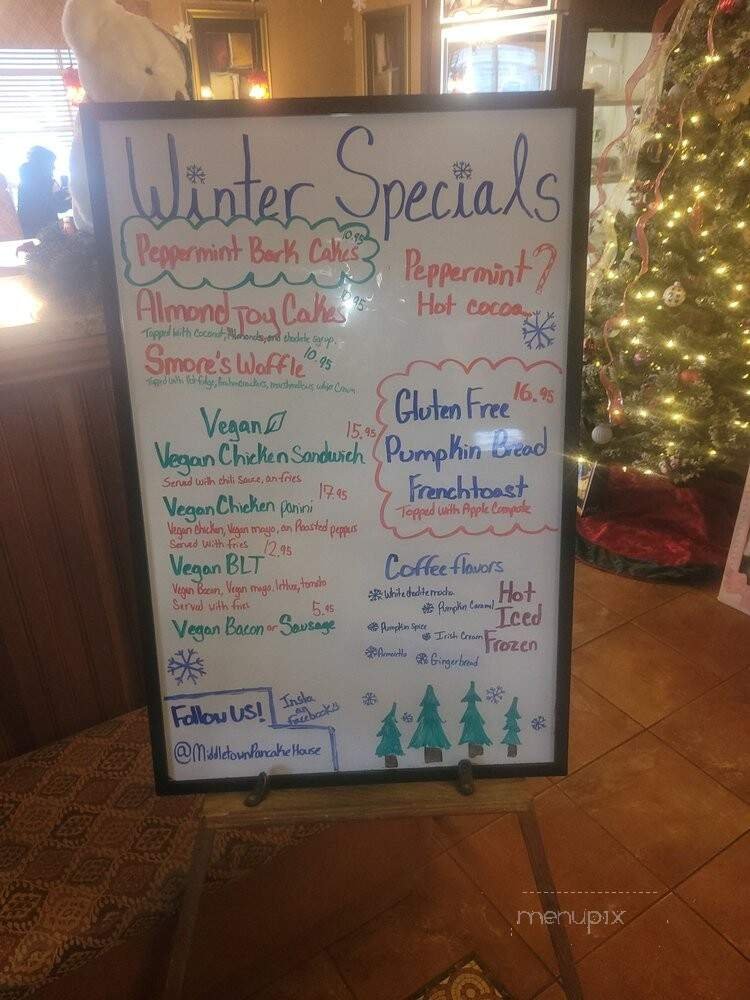 Winter Specials
Peppermint Bark Cakes 10.95
Almond Joy Cakes
Topped with Coconut, Almonds, and chocolate syrup
Smore's Waffle 10.95
marshmallows, whip Cream
Peppermint
Hot cocoa
Vegan
Vegan Chicken Sandwich 15.95
Served with chili sauce, an fries
Vegan Chicken panini 17.95
Vegan Chicken, Vegan mayo, an Roasted peppers
Served with fries
Vegan BLT 12.95
Vegan Bacon, Vegan mayo, lettuc, tomato
Served with fries
Vegan Bacon or Sausage 5.95
Gluten Free 16.95
Pumpkin Bread
Frenchtoast
Topped with Apple Compote
Coffee flavors
White chocolate mocha
Pumpkin Caramel
Pumpkin spice
Irish Cream
Amaretto
Gingerbread
Hot
Iced
Frozen
Follow US!
Insta
an
Facebook
@MiddletownPancakeHouse
menupix